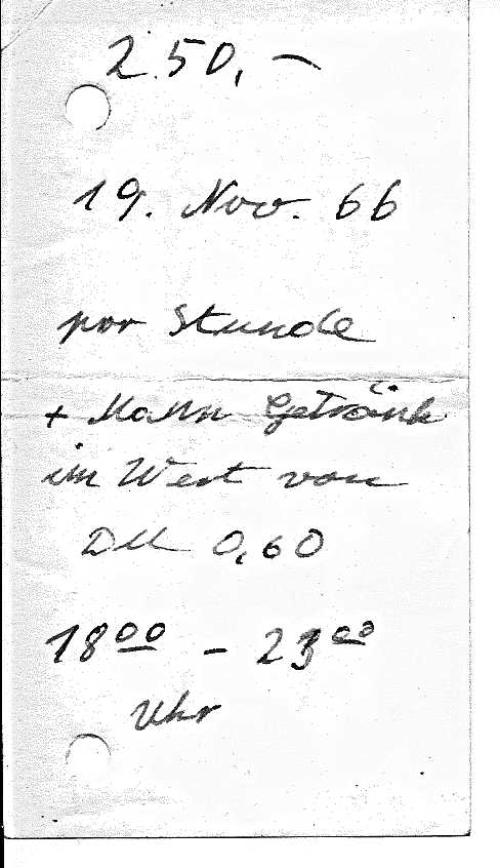 250,-
19. Nov. 66
por Stunde
+ Mann Getränk
im Wert von
DM 0,60
18⁰⁰ - 23⁰⁰
Uhr